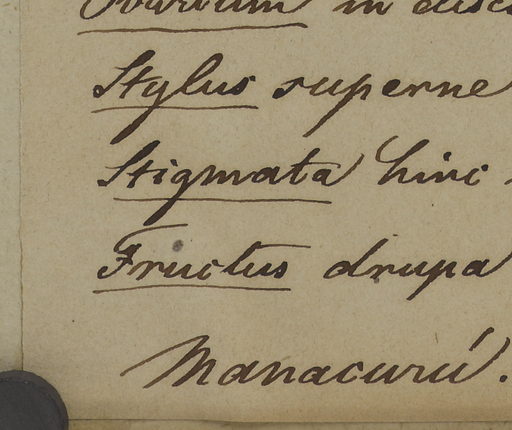 Ovarium in disc
Stylus superne
Stigmata hinc
Fructus drupa
Manacurú.